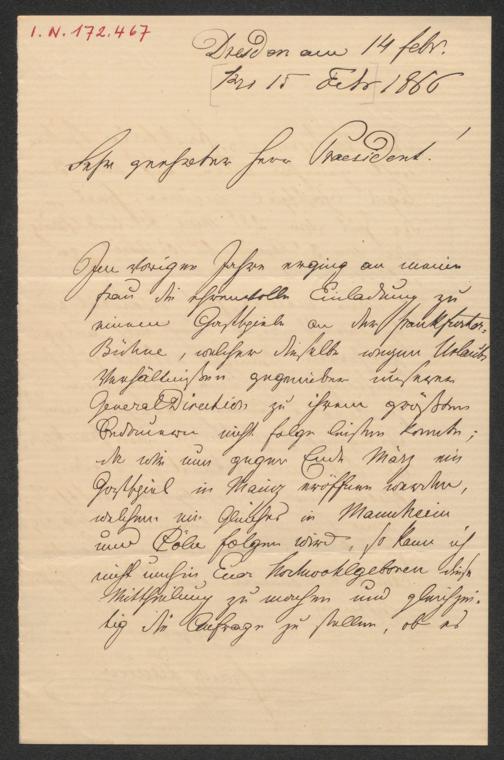 I.N.172.467
Dresden am 14 febr.
[bis 15 Febr] 1866
Sehr geehrter Herr Praesident!
Im vorigen Jahre erging an meine
frau die ehrenvolle Einladung zu
einem Gastspiele an der frankfurter-
Bühne, welcher dieselbe wegen Urlaubs
Verhältnißen gegenüber unserer
General Direction zu ihrem größten
Bedauern nicht folge leisten konnte;
da wir nun gegen Ende März ein
Gastspiel in Mainz eröffnen werden,
welchem ein Gleiches in Mannheim
und Cöln folgen wird, so kann ich
nicht umhin Euer Hochwohlgeboren diese
Mittheilung zu machen und gleichzei-
tig die Anfrage zu stellen, ob es